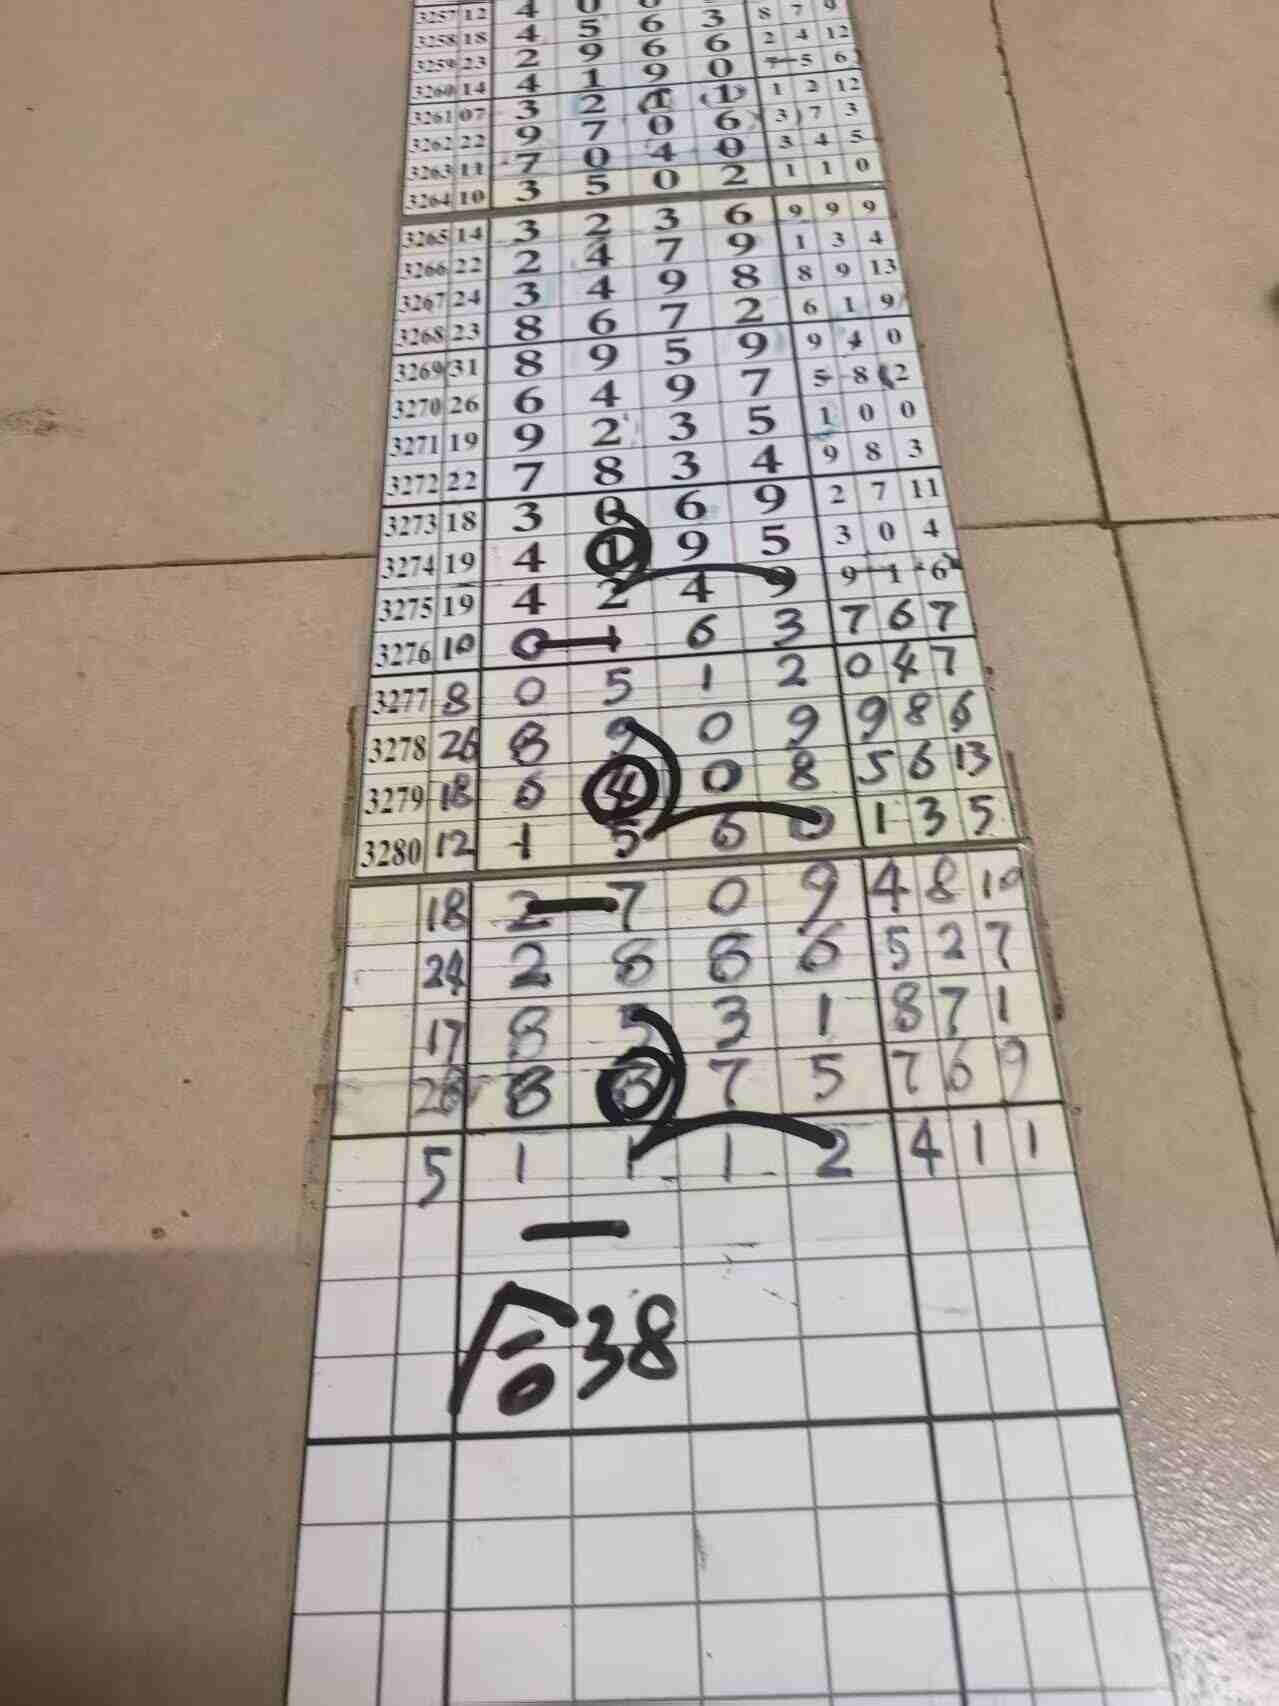 3257 12 4 0 8 7 9
3258 18 4 5 6 3 2 4 12
3259 23 2 9 6 6 7 5 6
3260 14 4 1 9 0 1 2 12
3261 07 3 2 1 1 3 7 3
3262 22 9 7 0 6 3 4 5
3263 11 7 0 4 0 1 1 0
3264 10 3 5 0 2
3265 14 3 2 3 6 9 9 9
3266 22 2 4 7 9 1 3 4
3267 24 3 4 9 8 8 9 13
3268 23 8 6 7 2 6 1 9
3269 31 8 9 5 9 9 4 0
3270 26 6 4 9 7 5 8 2
3271 19 9 2 3 5 1 0 0
3272 22 7 8 3 4 9 8 3
3273 18 3 0 6 9 2 7 11
3274 19 4 1 9 5 3 0 4
3275 19 4 2 4 9 9 1 6
3276 10 0 1 6 3 7 6 7
3277 8 0 5 1 2 0 4 7
3278 26 8 9 0 9 9 8 6
3279 18 6 4 0 8 5 6 13
3280 12 1 5 6 0 1 3 5
18 2 7 0 9 4 8 10
24 2 8 8 6 5 2 7
17 8 5 3 1 8 7 1
28 8 8 7 5 7 6 9
5 1 1 1 2 4 1 1
038